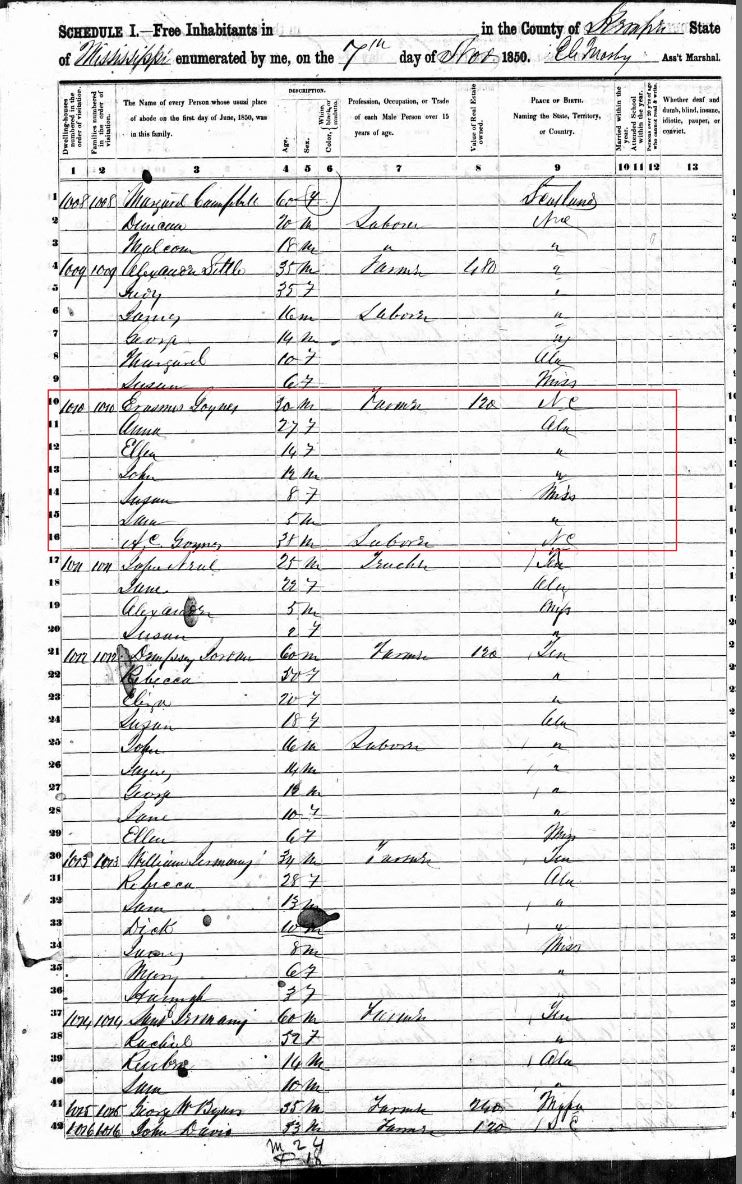 SCHEDULE I.—Free Inhabitants in in the County of Kemper State
of Mississippi enumerated by me, on the 7th day of Nov 1850. Mosby Ass't Marshal.
Dwelling-houses numbered in the order of visitation.
Families numbered in the order of visitation.
The Name of every Person whose usual place of abode on the first day of June, 1850, was in this family.
DESCRIPTION.
Age.
Sex.
Color, White, black, or mulatto.
Profession, Occupation, or Trade of each Male Person over 15 years of age.
Value of Real Estate owned.
PLACE OF BIRTH. Naming the State, Territory, or Country.
Married within the year.
Attended School within the year.
Persons over 20 y'rs of age who cannot read & write.
Whether deaf and dumb, blind, insane, idiotic, pauper, or convict.
1 2 3 4 5 6 7 8 9 10 11 12 13
1 1008 1008 Margaret Campbell 60 f Scotland 1
2 Duncan 20 m Laborer N C 2
3 Malcom 18 m " " 3
4 1009 1009 Alexander Little 35 m Farmer 480 " 4
5 Judy 35 f " 5
6 James 16 m Laborer " 6
7 George 14 m " 7
8 Margaret 10 f Ala 8
9 Susan 6 f Miss 9
10 1010 1010 Erasmus Goynes m Farmer 120 N C 10
11 Anna 27 f Ala 11
12 Ellen 14 f " 12
13 John 12 m " 13
14 Susan 8 f Miss 14
15 Sam 5 m " 15
16 A C. Goynes 38 m Laborer N C 16
17 1011 1011 John Neal 25 m Teacher Ten 17
18 Jane 22 f Ala 18
19 Alexander 5 m Miss 19
20 Susan 2 f " 20
21 1012 1012 Dempsey Jordan 60 m Farmer 120 Ten 21
22 Rebecca 50 f " 22
23 Eliza 20 f " 23
24 Susan 18 f Ala 24
25 John 16 m Laborer " 25
26 James 14 m " 26
27 George 12 m " 27
28 Jane 10 f " 28
29 Ellen 6 f Miss 29
30 1013 1013 William Germany 34 m Farmer Ten 30
31 Rebecca 28 f Ala 31
32 Sam 13 m " 32
33 Dick 10 m " 33
34 8 m Miss 34
35 Mary 6 f " 35
36 Hannah 3 f " 36
37 1014 1014 Germany 60 m Farmer Ten 37
38 Rachel 52 f " 38
39 Reuben 14 m Ala 39
40 Sam 10 m " 40
41 1015 1015 George W 35 m Farmer 240 41
42 1016 1016 John Davis 33 m Farmer 120 S C 42
m 24
f 18